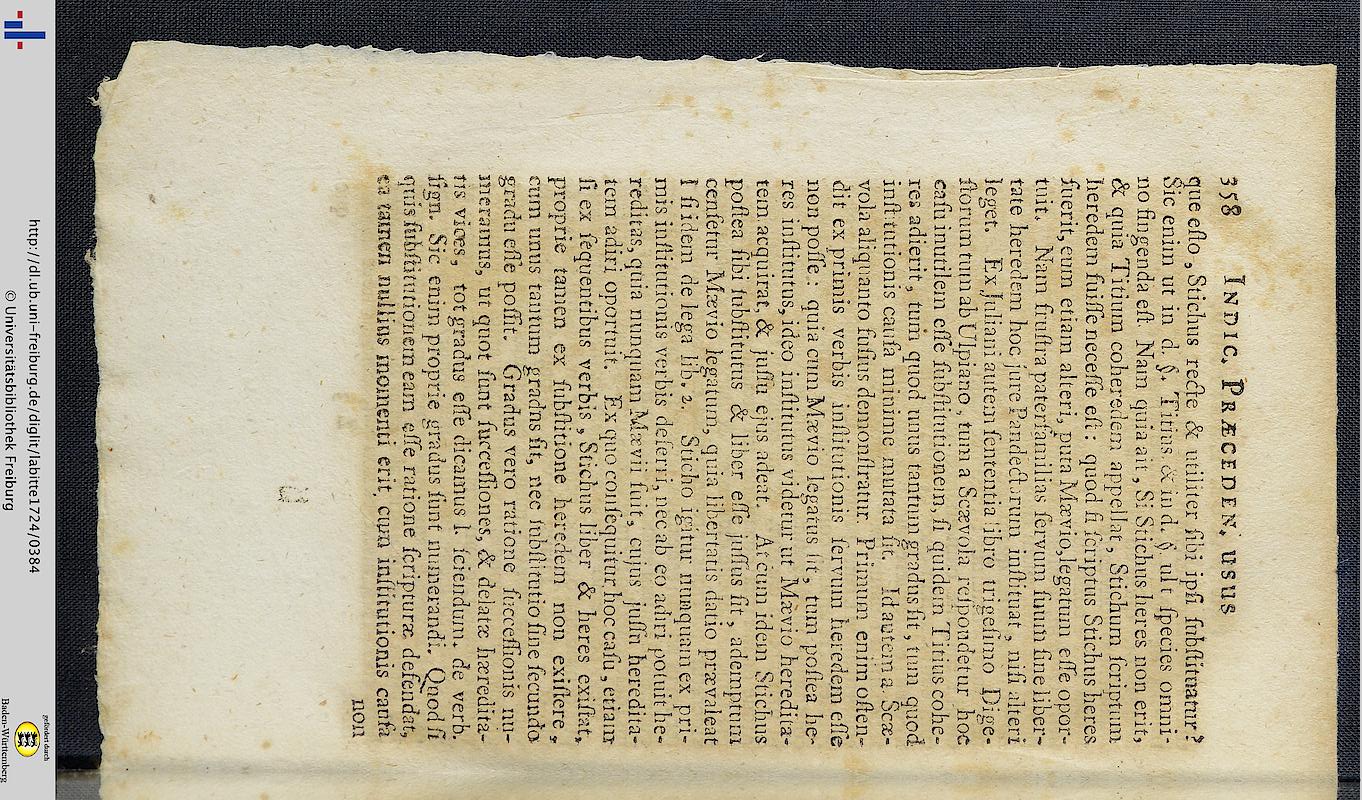 358 INDIC. PRÆCEDEN. USUS
que eſto, Stichus recte & utiliter ſibi ipſi ſubſtituatur?
Sic enim ut in d. §. Titius & in d. § ult ſpecies omni-
no fingenda eſt. Nam quia ait, Si Stichus heres non erit,
& qua Titium coheredem appellat, Stichum ſcriptum
heredem fuiſſe neceſſe eſt: quod ſi ſcriptus Stichus heres
fuerit, eum etiam alteri, puta Mævio, legatum eſſe opor-
tuit. Nam fruſtra paterfamilias ſervum ſuum ſine liber-
tate heredem hoc jure Pandectarum inſtituat, niſi alteri
leget. Ex Juliani autem ſententia libro trigeſimo Dige-
ſtorum tum ab Ulpiano, tum a Scævola reſpondetur hoc
caſu inutilem eſſe ſubſtitutionem, ſi quidem Titius cohe-
res adierit, tum quod unus tantum gradus ſit, tum quod
inſtitutionis cauſa minime mutata ſit. Id autem a Scæ-
vola aliquanto fuſius demonſtratur. Primum enim oſten-
dit ex primis verbis inſtitutionis ſervum heredem eſſe
non poſſe: quia cum Mævio legatus ſit, tum poſtea he-
res inſtitutus, ideo inſtitutus videtur ut Mævio heredita-
tem acquirat, & juſſu ejus adeat. At cum idem Stichus
poſtea ſibi ſubſtitutus & liber eſſe juſſus ſit, ademptum
cenſetur Mævio legatum, quia libertatis datio prævaleat
l ſi idem de lega lib. 2. Sticho igitur nunquam ex pri-
mis inſtitutionis verbis deferri, nec ab eo adiri potuit he-
reditas, quia nunquam Mævii fuit, cujus juſſu heredita-
tem adiri oportuit. Ex quo conſequitur hoc caſu, etiam
ſi ex ſequentibus verbis, Stichus liber & heres exiſtat,
proprie tamen ex ſubſtitione heredem non exiſtere,
cum unus tantum gradus ſit, nec ſubſtitutio ſine ſecundo
gradu eſſe poſſit. Gradus vero ratione ſucceſſionis nu-
meramus, ut quot ſunt ſucceſſiones, & delatæ hæredita-
tis vices, tot gradus eſſe dicamus l. ſciendum. de verb.
ſign. Sic enim proprie gradus ſunt numerandi. Quod ſi
quis ſubſtitutionem eam eſſe ratione ſcripturæ defendat,
ea tamen nullius momenti erit, cum inſtitutionis cauſa
non
http://dl.ub.uni-freiburg.de/diglit/labitte1724/0384
© Universitätsbibliothek Freiburg
gefördert durch
Baden-Württemberg